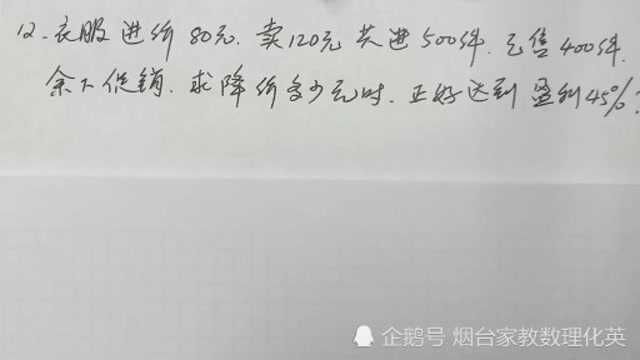 12.衣服进价80元.卖120元共进500件.已售400件.
余下促销.求降价多少元时.正好达到盈利45%?
企鹅号 烟台家教数理化英